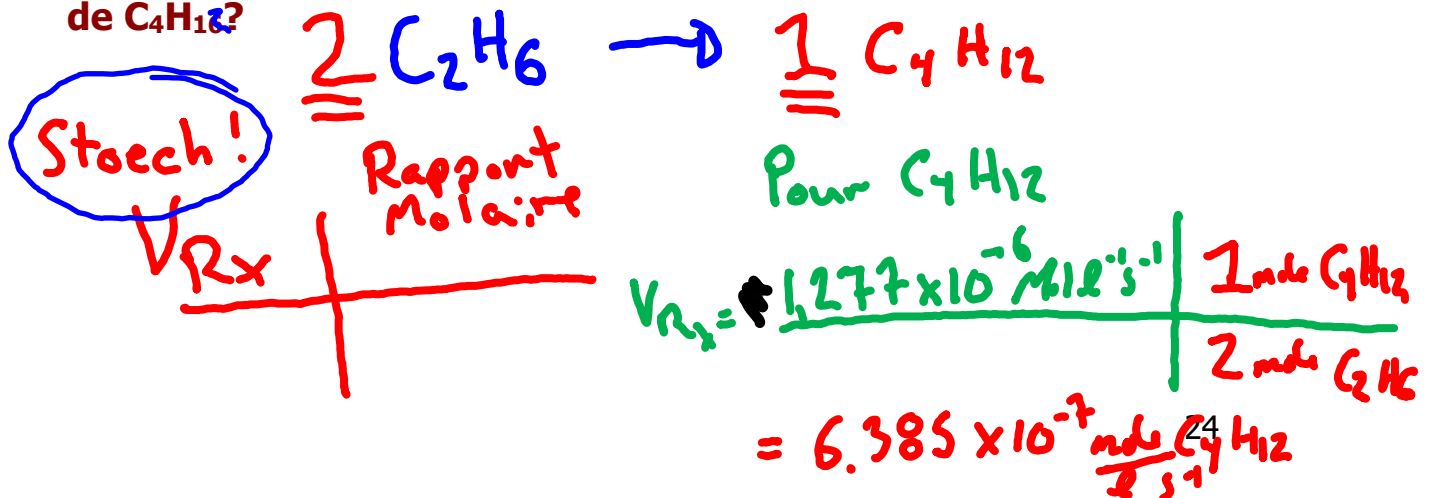 de C₄H₁₆2?
2 C₂H₆ → 1 C₄H₁₂
Stoech!
Rapport
Molaire
V Rx
Pour C₄H₁₂
V Rx = 1,277 x 10⁻⁶ M l⁻¹ s⁻¹ | 1 mole C₄H₁₂
2 mole C₂H₆
= 6.385 x 10⁻⁷ mole C₄H₁₂
l s⁻¹
24